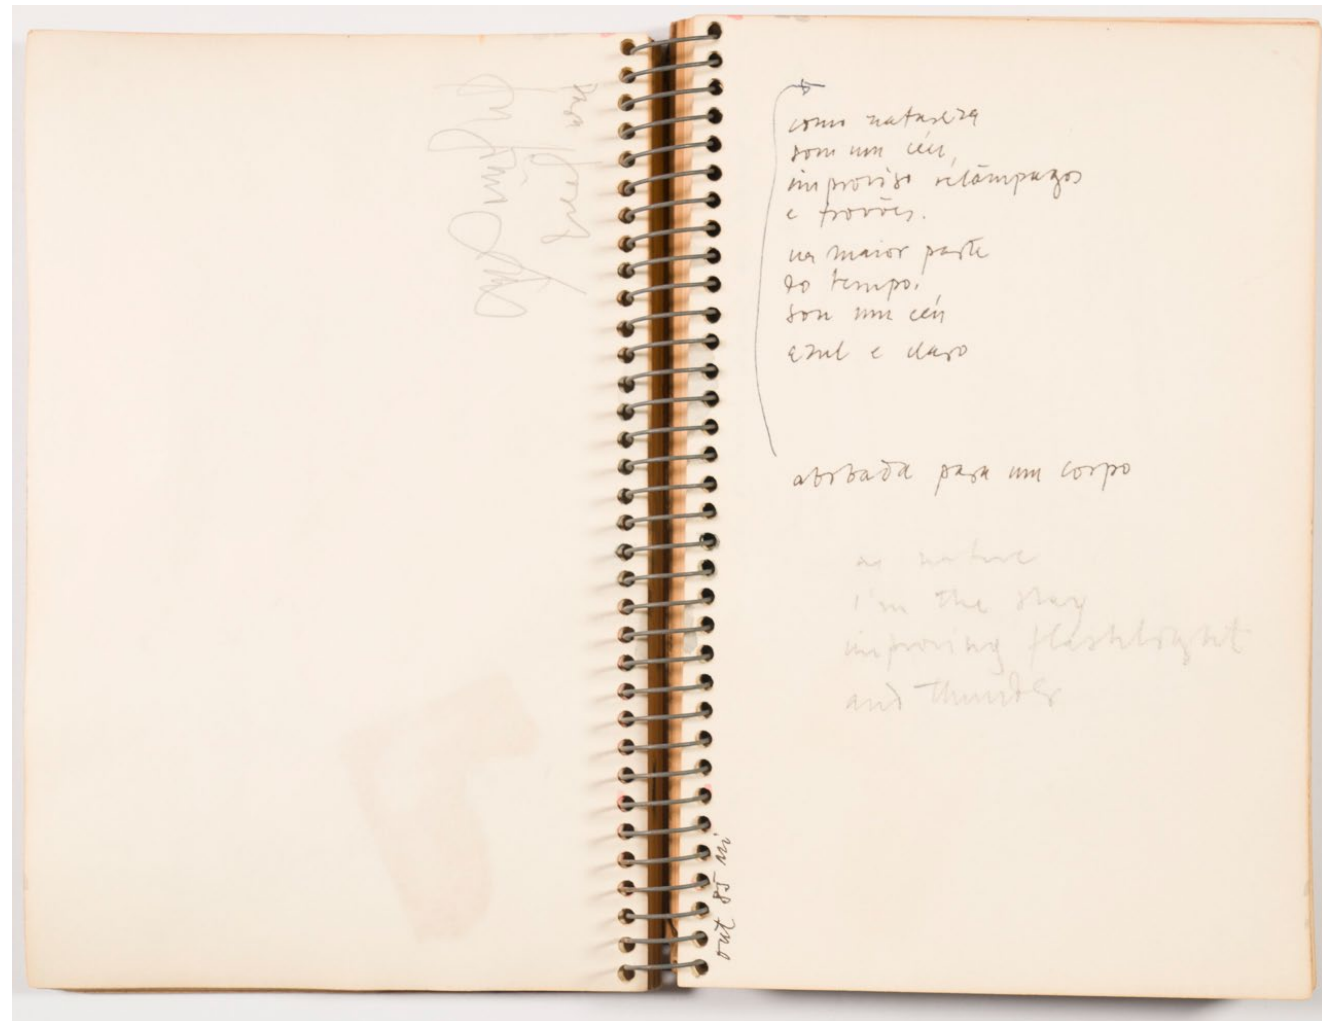 como natureza
sou um céu,
improviso relâmpagos
e trovões.
na maior parte
do tempo.
sou um céu
azul e claro
abóbada para um corpo
as nature
I'm the
improving flashlight
and thunder
out 85